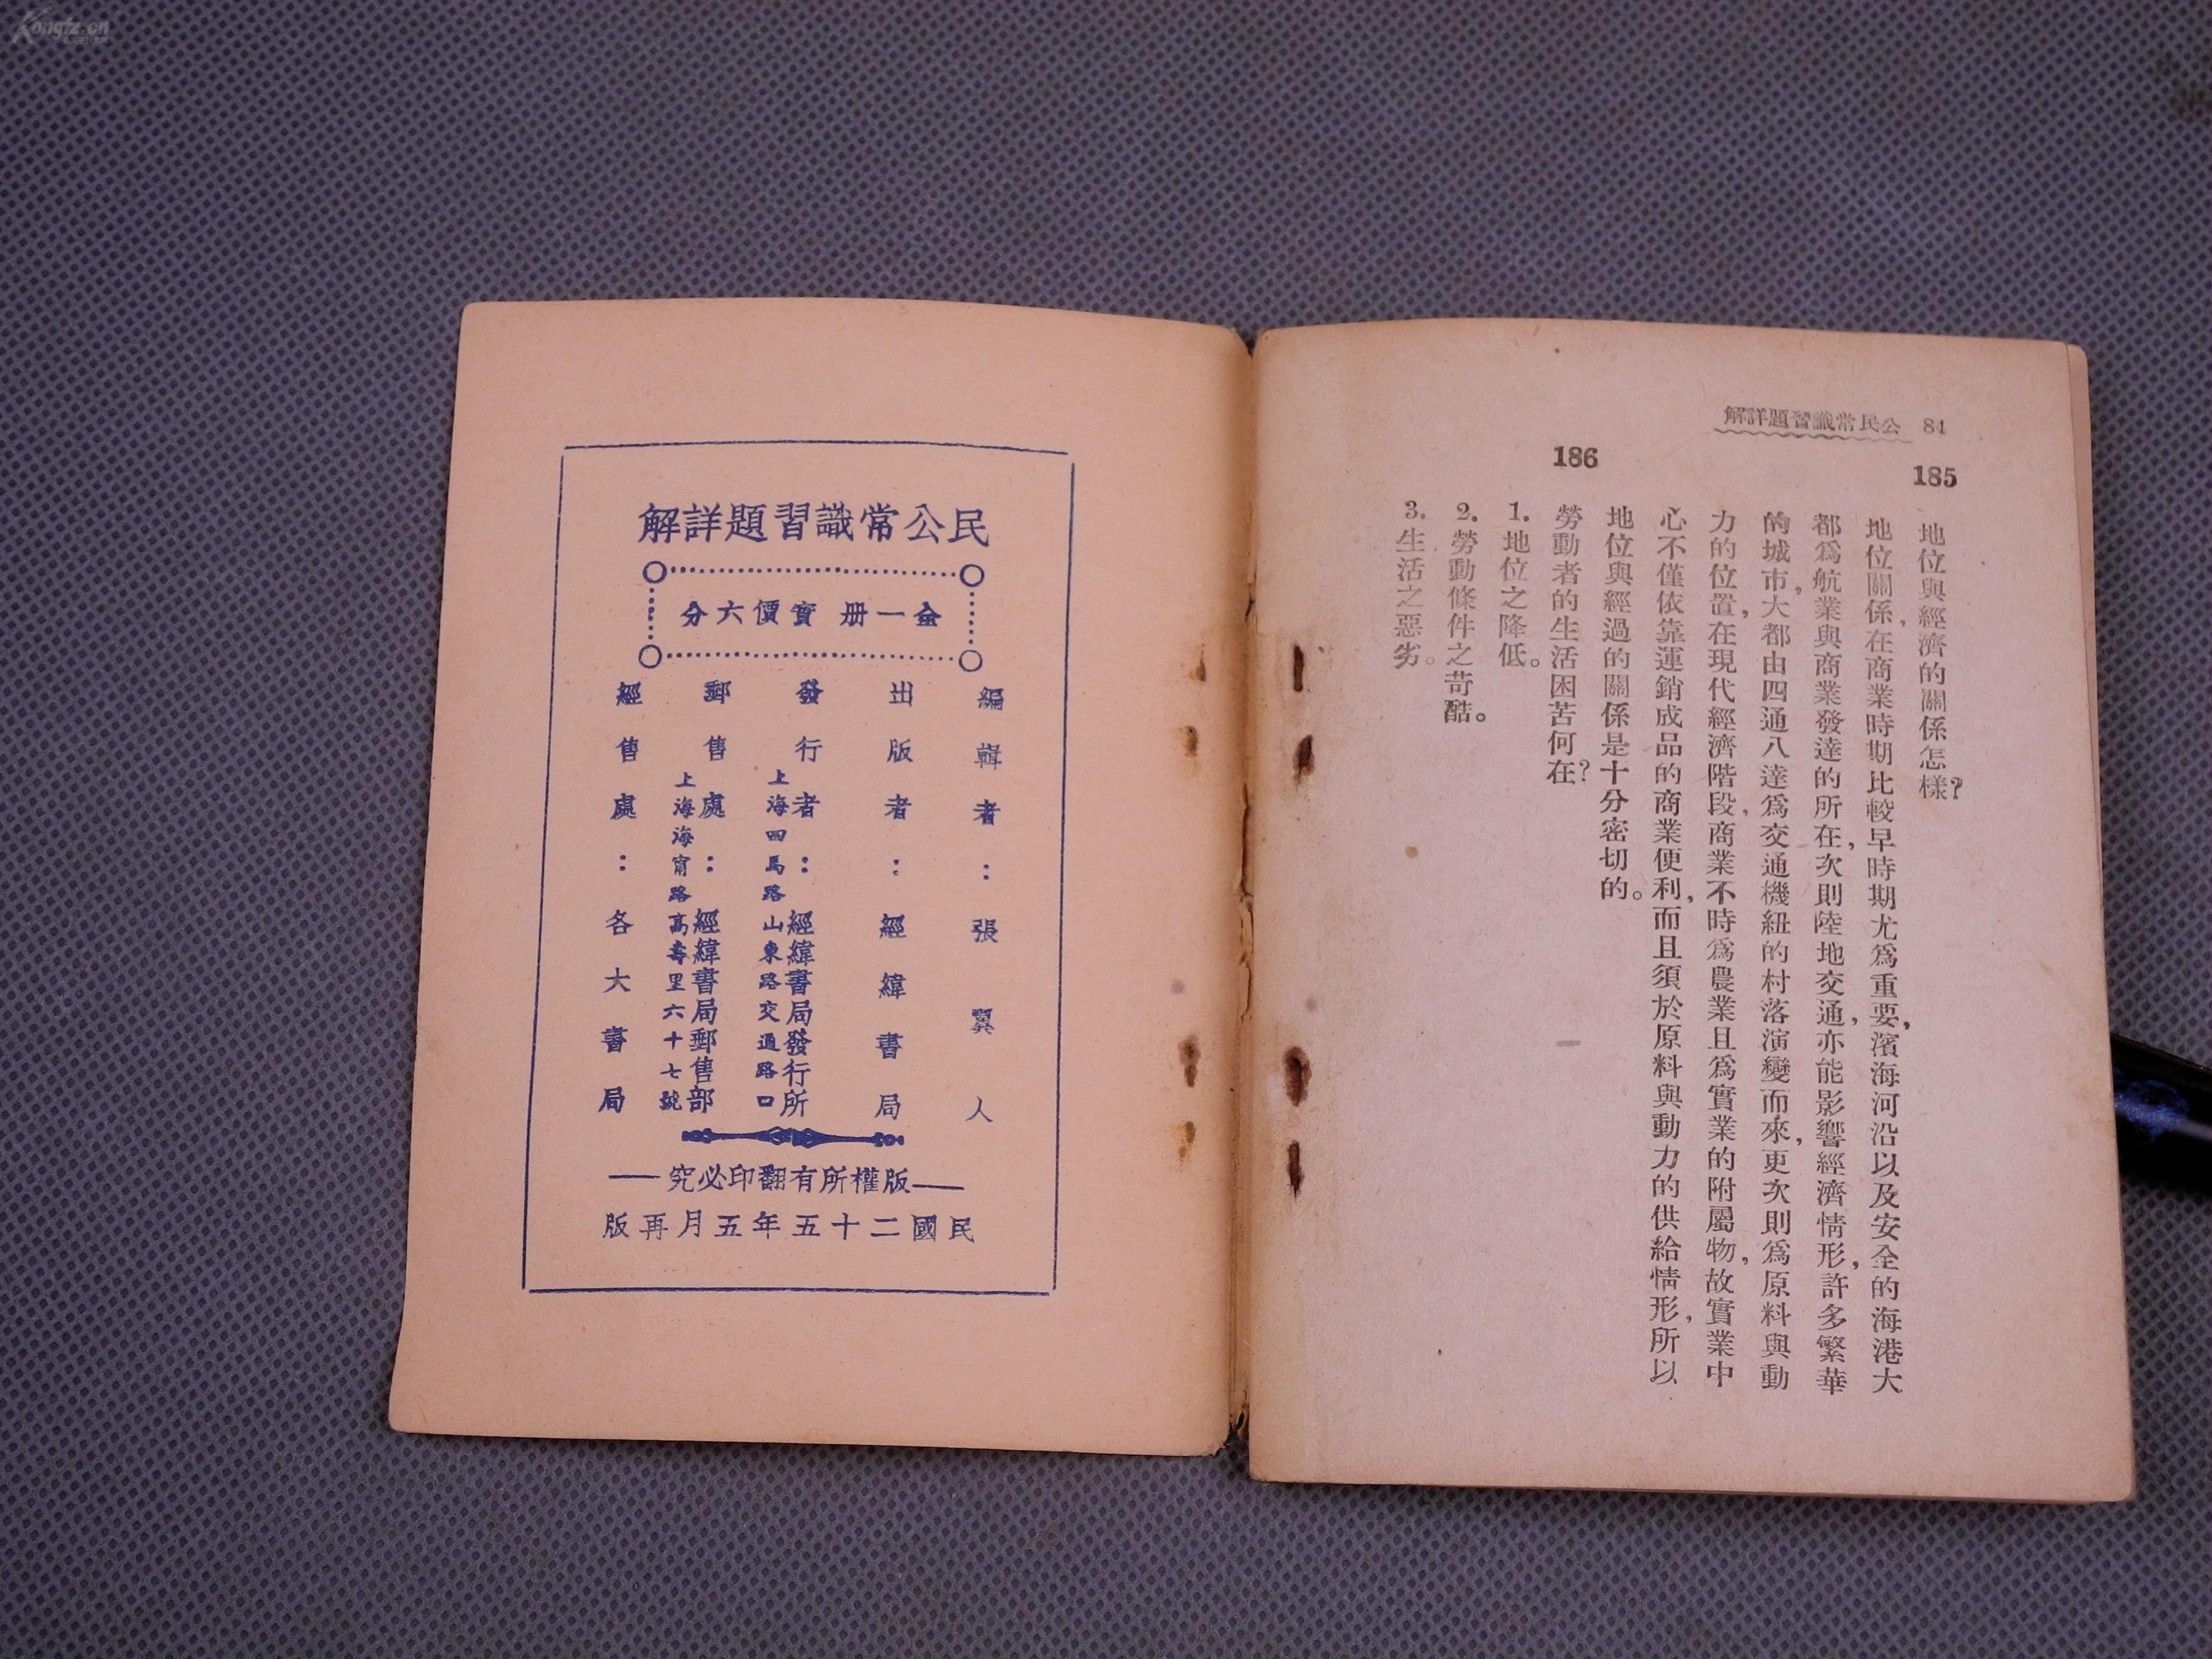 84 公民常識習題詳解
185
地位與經濟的關係怎樣?
地位關係,在商業時期比較早時期尤爲重要,濱海河沿以及安全的海港大
都爲航業與商業發達的所在,次則陸地交通,亦能影響經濟情形,許多繁華
的城市,大都由四通八達爲交通機紐的村落演變而來,更次則爲原料與動
力的位置,在現代經濟階段,商業不時爲農業且爲實業的附屬物,故實業中
心不僅依靠運銷成品的商業便利,而且須於原料與動力的供給情形,所以
地位與經過的關係是十分密切的。
186
勞動者的生活困苦何在?
1.地位之降低。
2.勞動條件之苛酷。
3.生活之惡劣。
民公常識習題詳解
全一册 實價六分
編輯者:張翼人
出版者:經緯書局
發行者:經緯書局發行所
上海四馬路山東路交通路口
郵售處:經緯書局郵售部
上海海甯路高壽里六十七號
經售處:各大書局
——版權所有翻印必究——
民國二十五年五月再版
Kongfz.cn